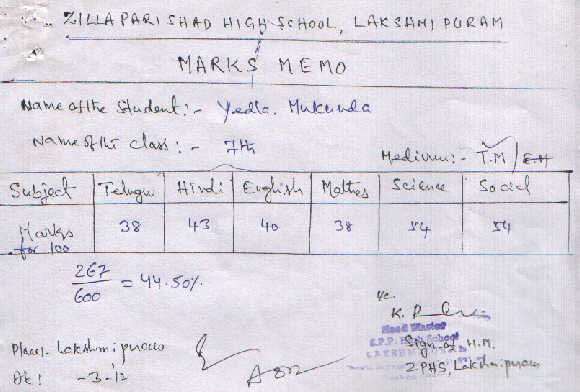 ZILLA PARISHAD HIGH SCHOOL, LAKSHMI PURAM
MARKS MEMO
Name of the Student:- Yedla. Mukunda
Name of the class:- 7th
Medium:- T.M / E.M
Subject Telugu Hindi English Maths Science Social
Marks for 100 38 43 40 38 54 54
267/600 = 44.50%
Head Master
Sign of H.M.
Place:- Lakshmipuram
Z.P.H.S, Lakshmipuram
Dt: -3-12